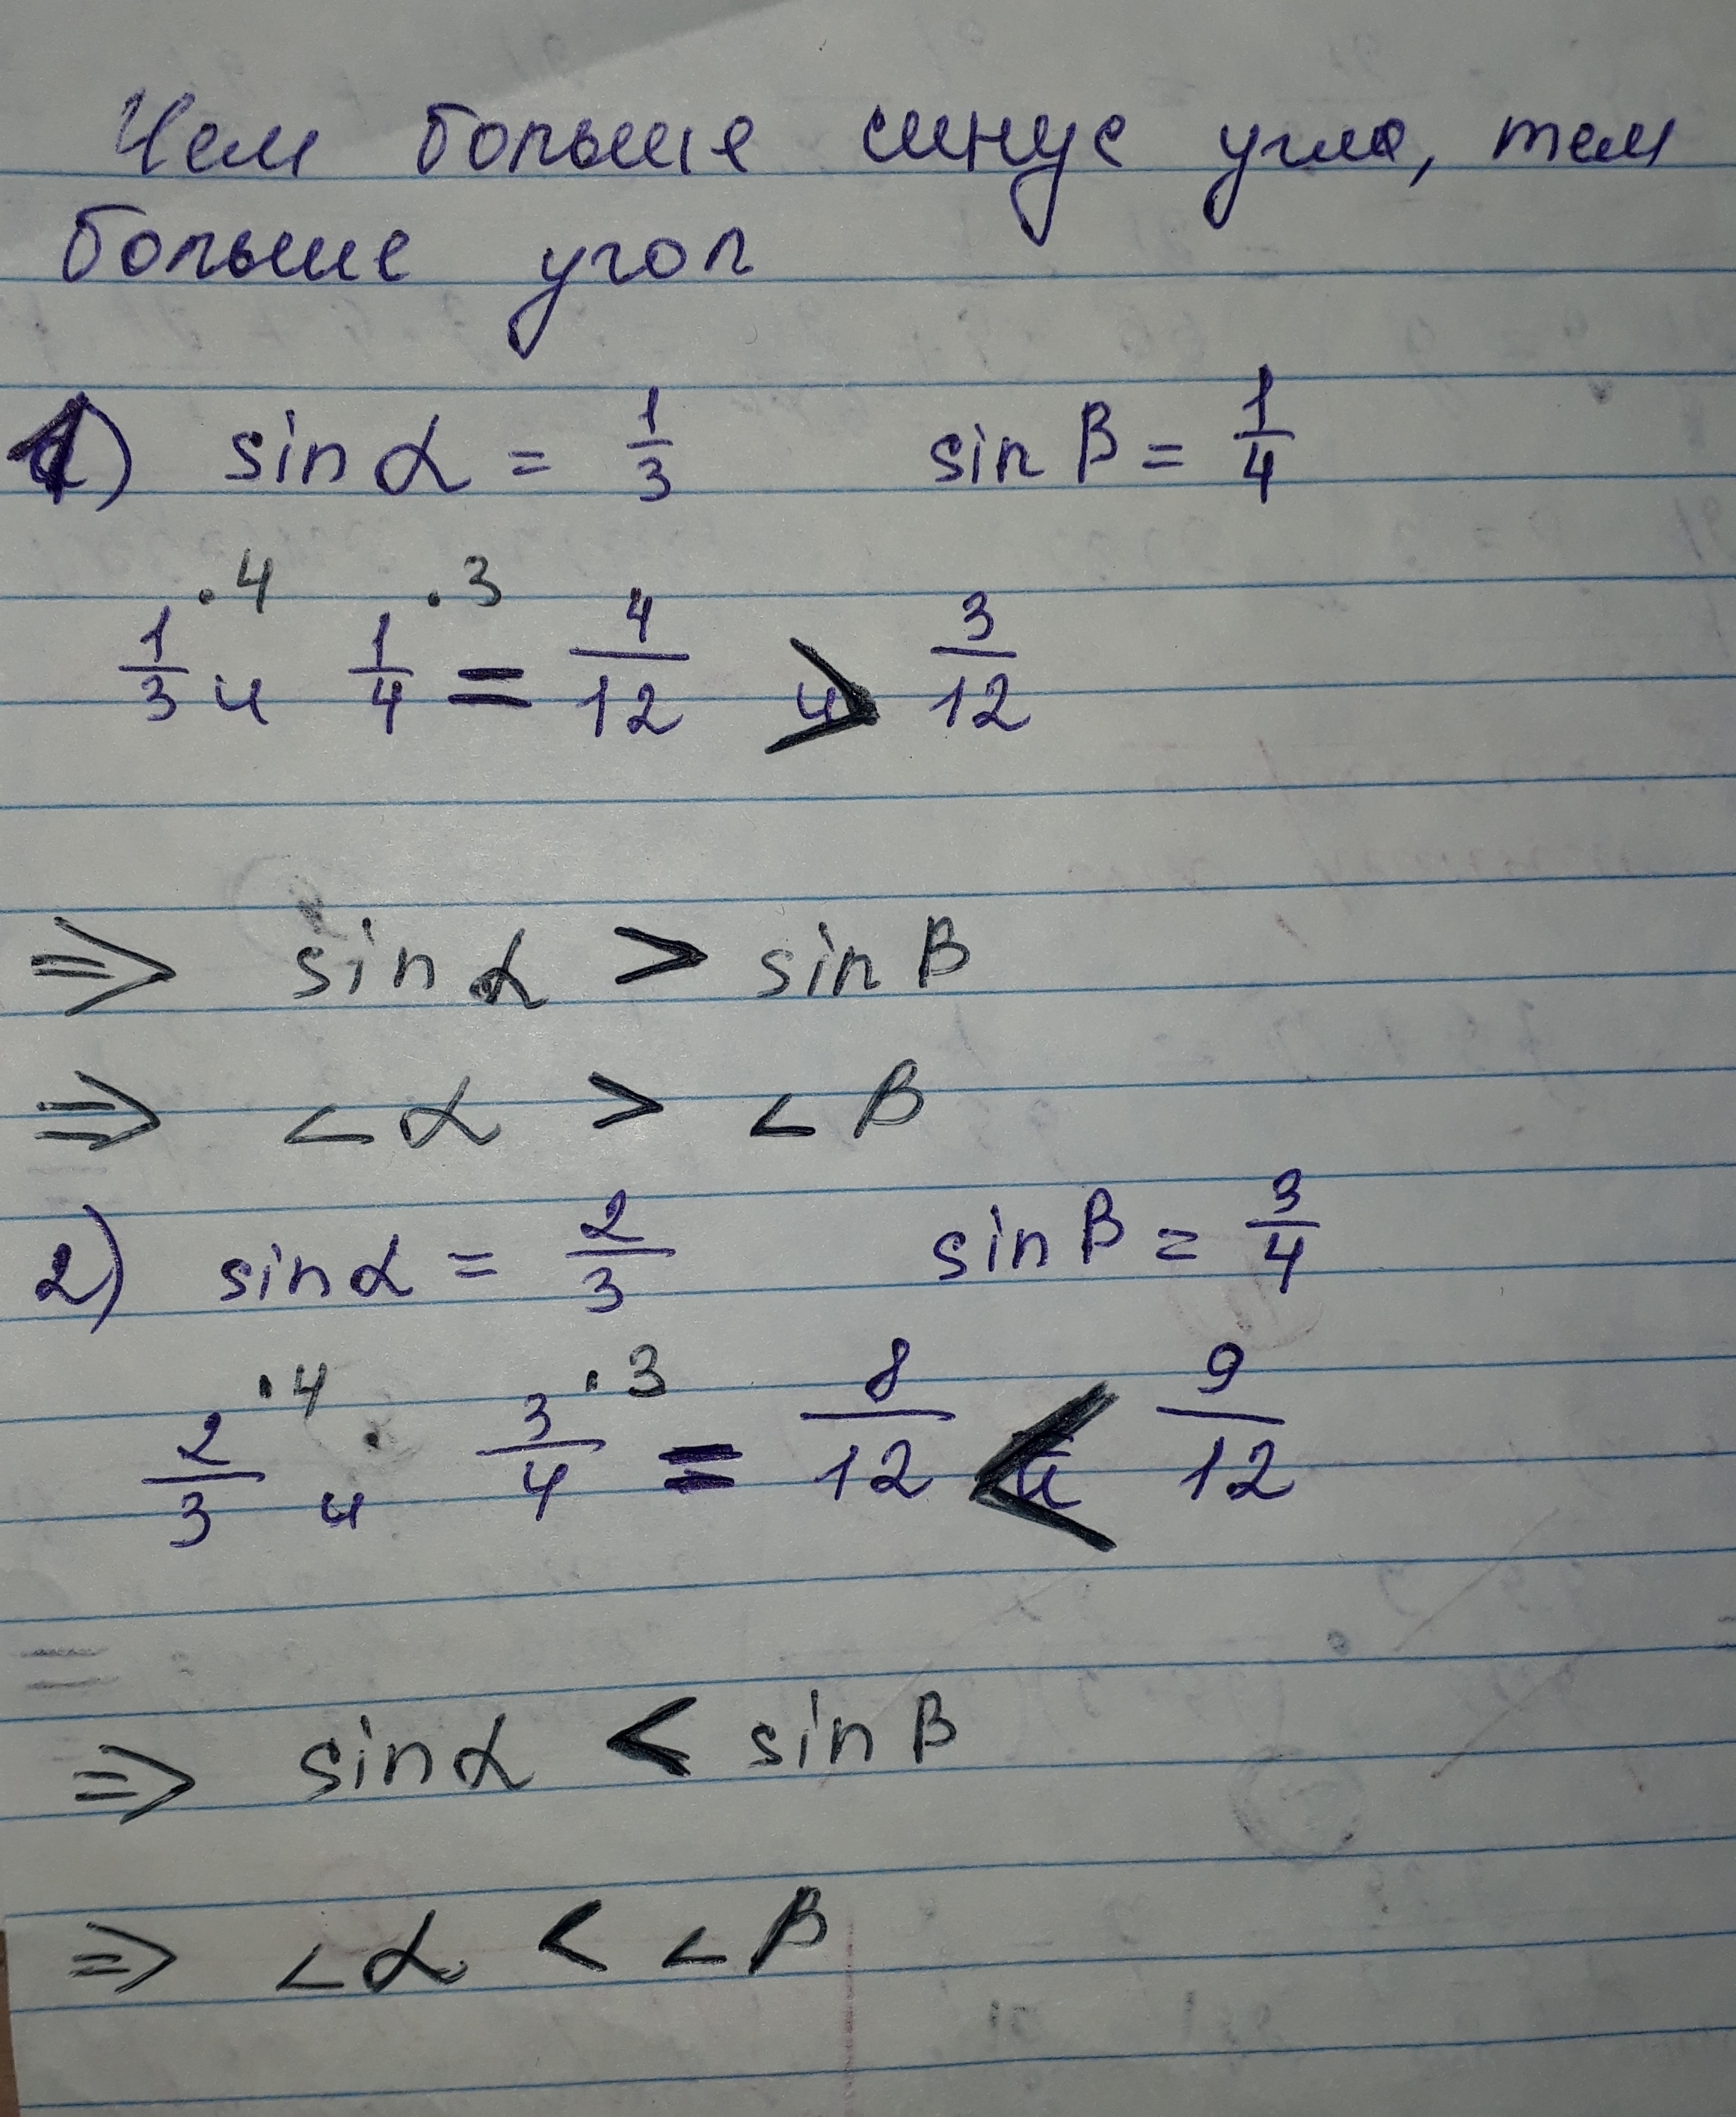 Чем больше синус угла, тем
больше угол
1) sin α = 1/3 sin β = 1/4
·4 ·3
1/3 и 1/4 = 4/12 > 3/12
⇒ sin α > sin β
⇒ ∠α > ∠β
2) sin α = 2/3 sin β = 3/4
·4 ·3
2/3 и 3/4 = 8/12 < 9/12
⇒ sin α < sin β
⇒ ∠α < ∠β